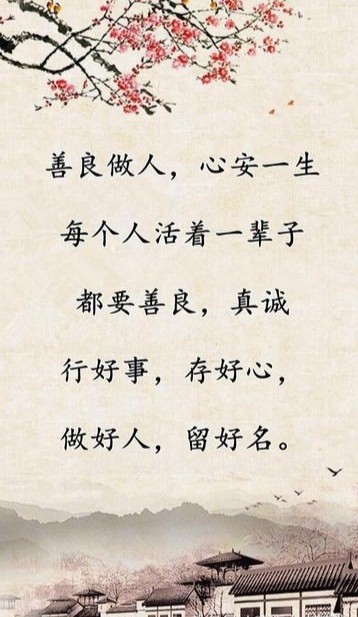 善良做人，心安一生
每个人活着一辈子
都要善良，真诚
行好事，存好心，
做好人，留好名。